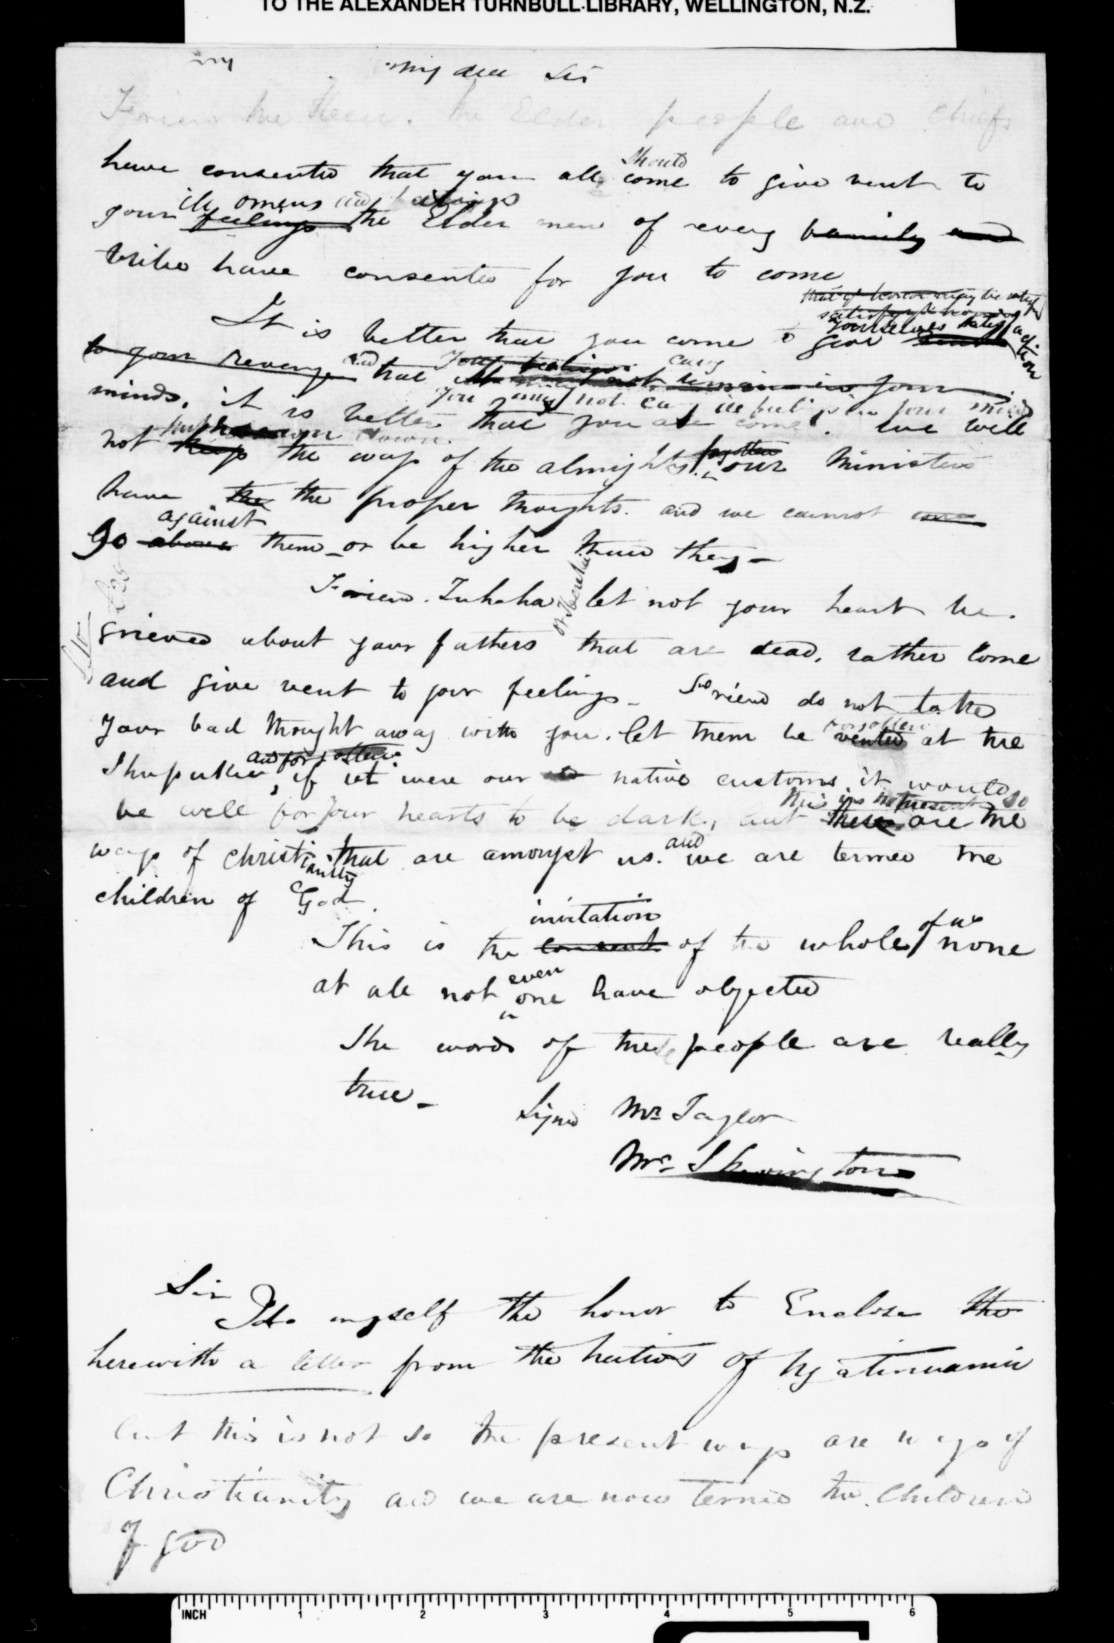 TO THE ALEXANDER TURNBULL LIBRARY, WELLINGTON, N.Z.
my My dear Sir
Friend the Elder people and Chiefs
should
have consented that you all come to give vent to
ill omens and feelings
your feelings the Elder men of every family and
tribe have consented for you to come
It is better that you come to give
to your revenge and that
you may not carry ill feelings in your minds
minds, it is better that you all come. We will
not keep the ways of the almighty. forgotten our Ministers
have the the proper thoughts. and we cannot
against
go above them or be higher than they -
Friend let not your heart be
grieved about your fathers that are dead, rather come
and give vent to your feelings - Friend do not take
forgotten
your bad thought away with you. let them be vented at the
and forgotten
if it were our old native customs it would
this is not present so
be well for your hearts to be dark, but these are the
and
ways of Christianity that are amongst us. we are termed the
children of God.
invitation
This is the consent of the whole of us none
even
at all not one have objected
The words of these people are really
true -
Signed Mr Taylor
Mr Skevington
Sir
I do myself the honor to Enclose the
herewith a letter from the natives of Ngatiruanui
but this is not so the present ways are ways of
Christianity and we are now termed the Children
of God
INCH 1 2 3 4 5 6